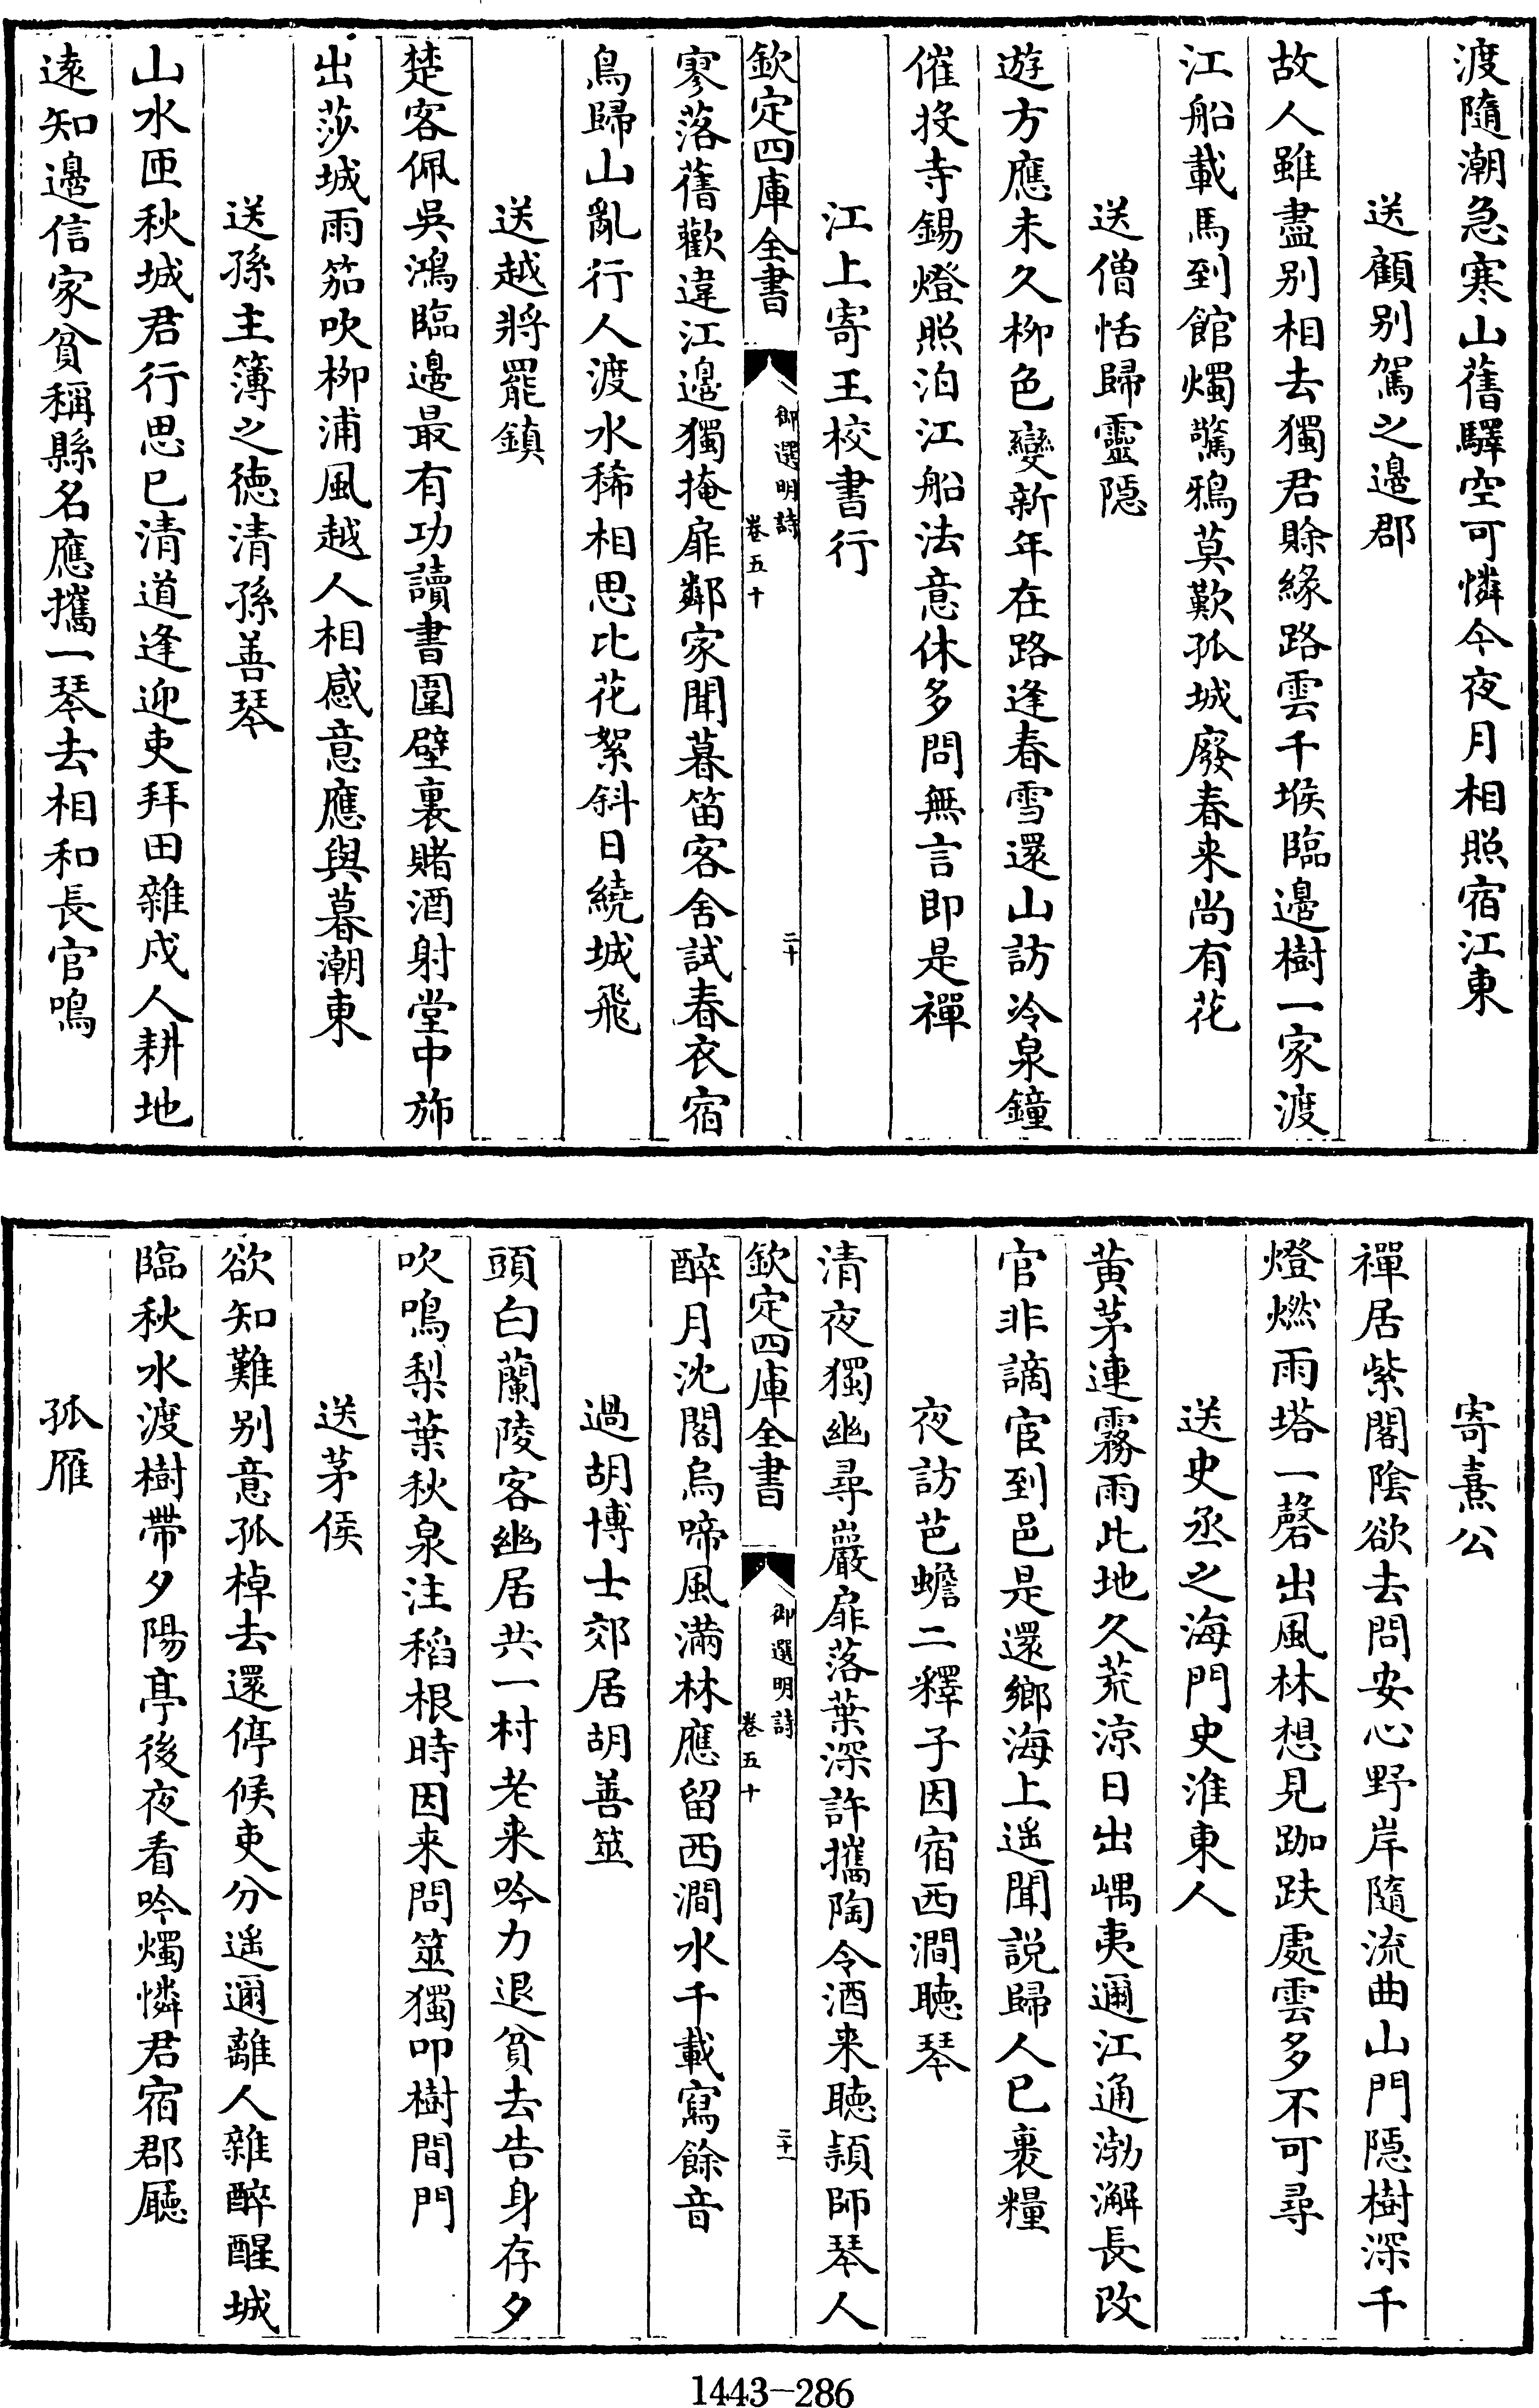 渡隨潮急寒山舊驛空可憐今夜月相照宿江東
送顧别駕之邊郡
故人雖盡别相去獨君賖緣路雲千堠臨邊樹一家渡
江船載馬到館燭驚鴉莫歎孤城廢春来尚有花
送僧恬歸靈隠
遊方應未久栁色變新年在路逢春雪還山訪冷泉鐘
催投寺錫燈照泊江船法意休多問無言即是禪
江上寄王校書行
欽定四庫全書
御選明詩
卷五十
二十
寥落舊歡違江邊獨掩扉鄰家聞暮笛客舍試春衣宿
鳥歸山亂行人渡水稀相思比花絮斜日繞城飛
送越將罷鎮
楚客佩吳鴻臨邊最有功讀書圍壁裏賭酒射堂中斾
出莎城雨笳吹栁浦風越人相感意應與暮潮東
送孫主簿之徳清孫善琴
山水匝秋城君行思已清道逢迎吏拜田雜戍人耕地
逺知邊信家貧稱縣名應攜一琴去相和長官鳴
寄熹公
禪居紫閣隂欲去問安心野岸隨流曲山門隠樹深千
燈燃雨塔一磬出風林想見跏趺處雲多不可尋
送史丞之海門史淮東人
黄茅連霧雨此地久荒凉日出嵎夷邇江通渤澥長改
官非謫宦到邑是還鄉海上遥聞説歸人已裹糧
夜訪芑蟾二釋子因宿西澗聴琴
清夜獨幽尋巖扉落葉深許攜陶令酒来聴頴師琴人
欽定四庫全書
御選明詩
卷五十
二十一
醉月沈閣烏啼風滿林應留西澗水千載寫餘音
過胡博士郊居胡善筮
頭白蘭陵客幽居共一村老来吟力退貧去告身存夕
吹鳴梨葉秋泉注稻根時因来問筮獨叩樹間門
送茅侯
欲知難别意孤棹去還停候吏分遥邇離人雜醉醒城
臨秋水渡樹帶夕陽亭後夜看吟燭憐君宿郡廳
孤雁
1443-286